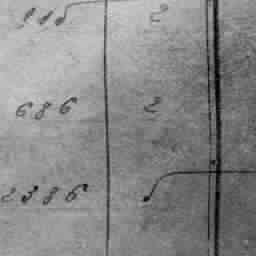 2
686 2
2386